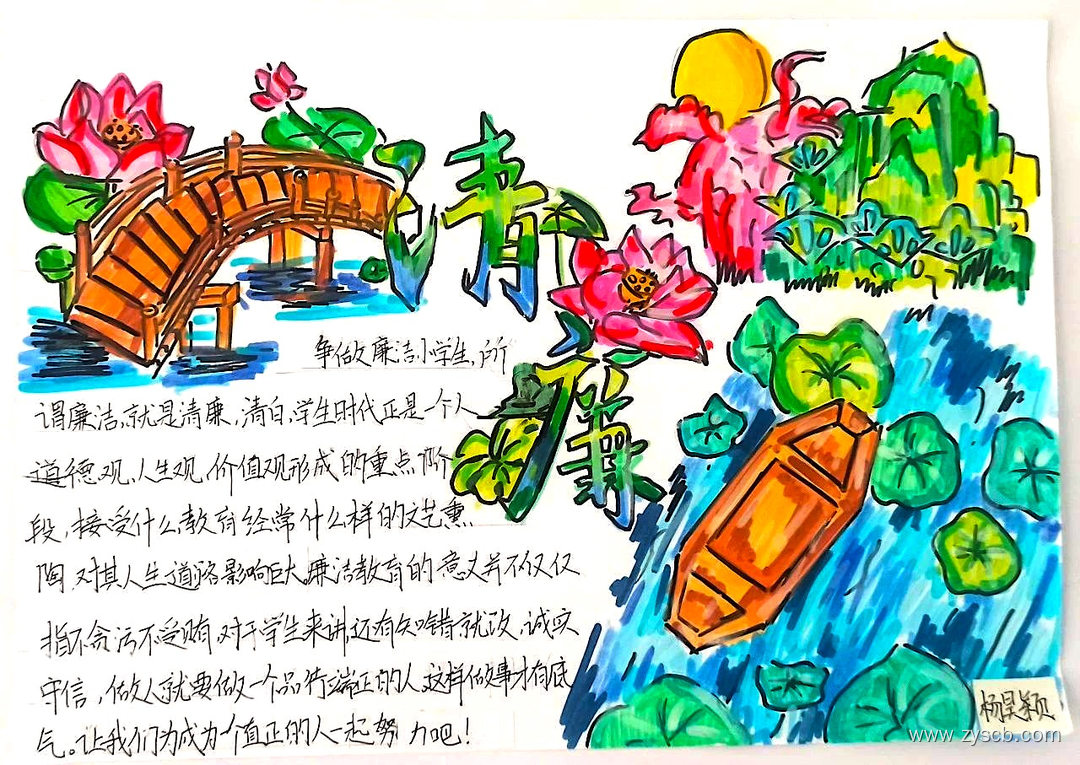 清
廉
争做廉洁小学生,所
谓廉洁,就是清廉,清白,学生时代正是一个人
道德观、人生观、价值观形成的重点阶
段,接受什么教育经常什么样的文艺熏
陶,对其人生道路影响巨大,廉洁教育的意义并不仅仅
指不贪污不受贿,对于学生来讲,还有知错就改、诚实
守信,做人就要做一个品行端正的人,这样做事才有底
气。让我们为成为个值正的人一起努力吧!
杨昊颖
www.zyscb.com